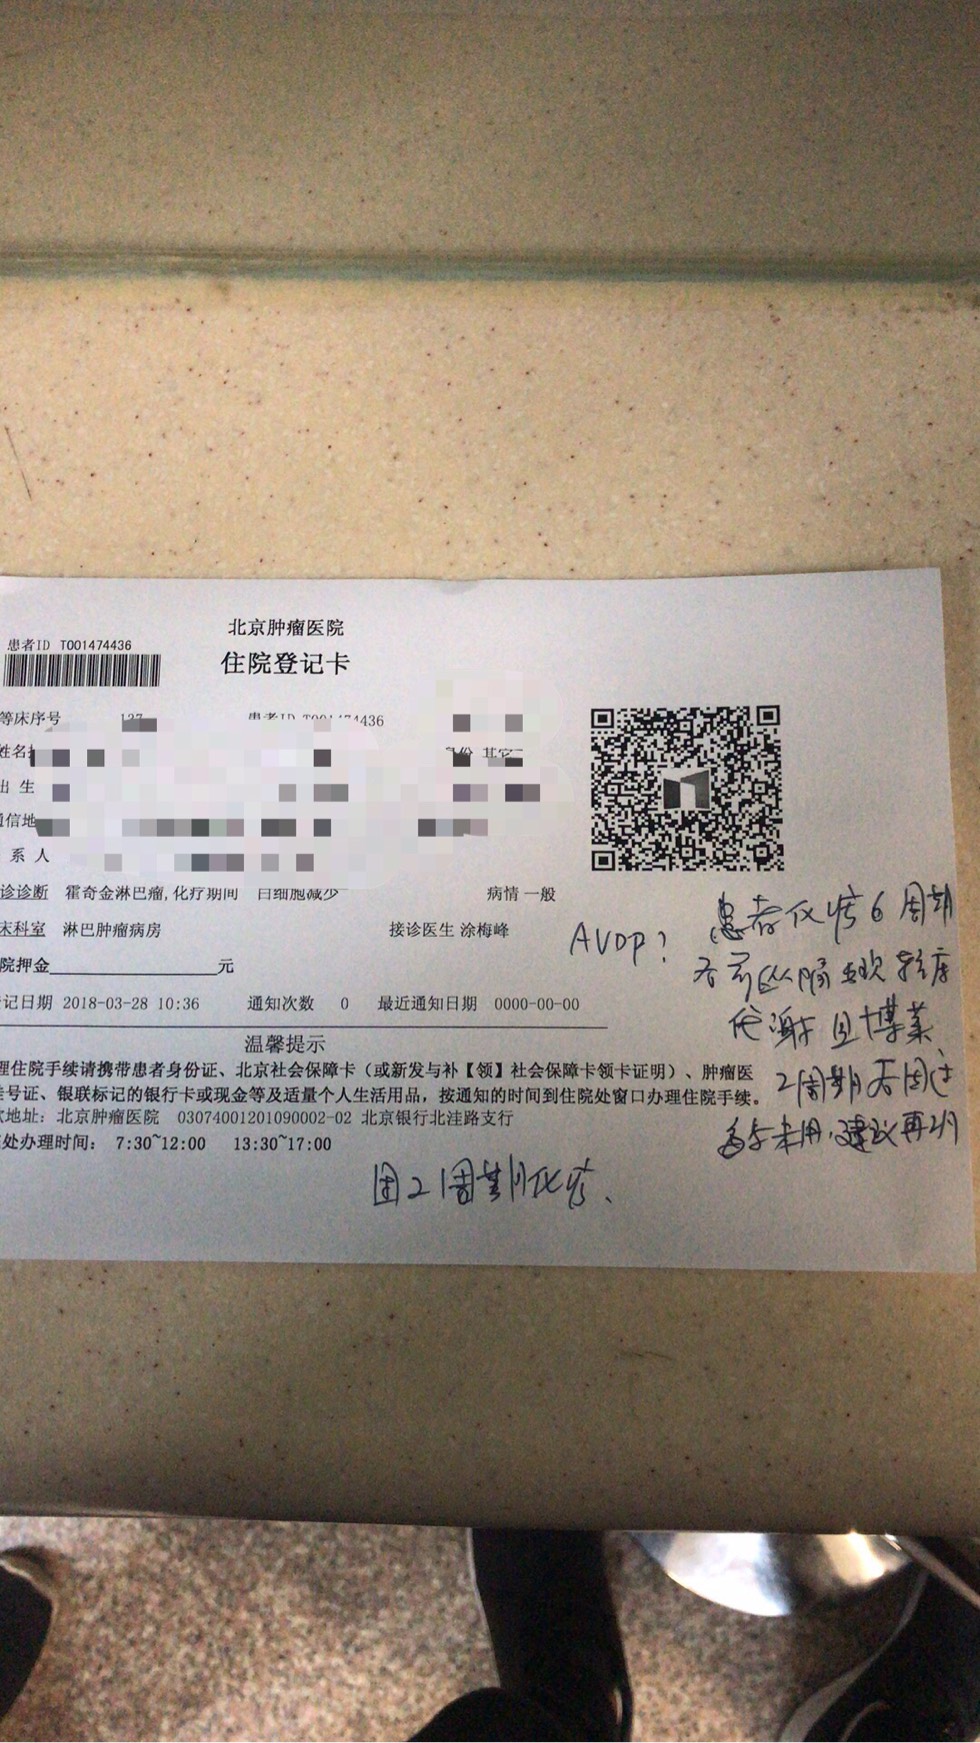 北京肿瘤医院
患者ID T001474436
住院登记卡
等床序号
患者ID T001474436
姓名
身份 其它
出 生
通信地
系 人
诊诊断 霍奇金淋巴瘤,化疗期间 白细胞减少 病情 一般
床科室 淋巴肿瘤病房 接诊医生 涂梅峰
院押金 元
记日期 2018-03-28 10:36 通知次数 0 最近通知日期 0000-00-00
温馨提示
理住院手续请携带患者身份证、北京社会保障卡（或新发与补【领】社会保障卡领卡证明）、肿瘤医
号证、银联标记的银行卡或现金等及适量个人生活用品，按通知的时间到住院处窗口办理住院手续。
地址: 北京肿瘤医院 03074001201090002-02 北京银行北洼路支行
处办理时间: 7:30~12:00 13:30~17:00
AVDP?
患者化疗6周期
后前纵隔出现轻度
代谢 且博莱
2周期后因过
未用,建议再行
2周期化疗、